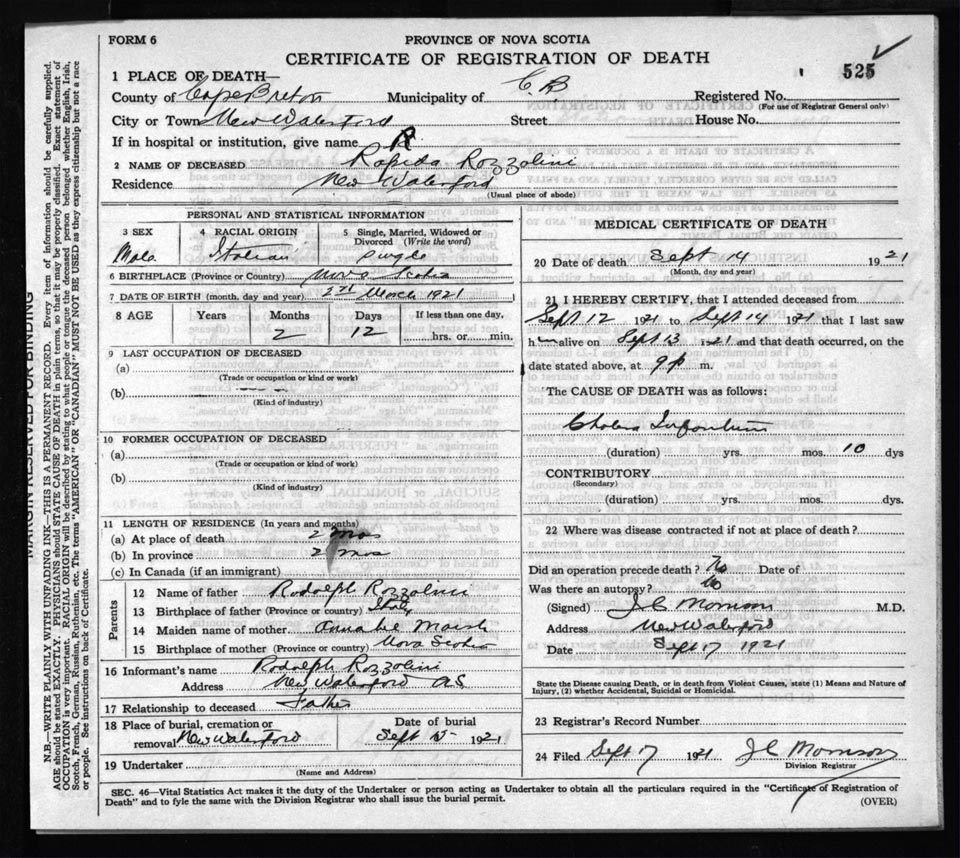 FORM 6
PROVINCE OF NOVA SCOTIA
CERTIFICATE OF REGISTRATION OF DEATH
525
1 PLACE OF DEATH—
County of Cape Breton Municipality of C. B Registered No.
(For use of Registrar General only)
City or Town New Waterford Street House No.
If in hospital or institution, give name
2 NAME OF DECEASED Rozzolini
Residence New Waterford
(Usual place of abode)
PERSONAL AND STATISTICAL INFORMATION
3 SEX 4 RACIAL ORIGIN 5 Single, Married, Widowed or Divorced (Write the word)
Male Italian Single
6 BIRTHPLACE (Province or Country) Nova Scotia
7 DATE OF BIRTH (month, day, and year) March 1921
8 AGE Years Months Days If less than one day,
2 12 hrs. or min.
9 LAST OCCUPATION OF DECEASED
(a)
(Trade or occupation or kind or work)
(b)
(Kind of industry)
10 FORMER OCCUPATION OF DECEASED
(a)
(Trade or occupation or kind of work)
(b)
(Kind of industry)
11 LENGTH OF RESIDENCE (In years and months)
(a) At place of death 2 mos
(b) In province 2 mos
(c) In Canada (if an immigrant)
Parents
12 Name of father Rodolph Rozzolini
13 Birthplace of father (Province or country) Italy
14 Maiden name of mother
15 Birthplace of mother (Province or country) Nova Scotia
16 Informant's name Rodolph Rozzolini
Address New Waterford
17 Relationship to deceased Father
18 Place of burial, cremation or removal New Waterford
Date of burial
Sept 15 1921
19 Undertaker
(Name and Address)
MEDICAL CERTIFICATE OF DEATH
20 Date of death Sept 14 1921
(Month, day and year)
21 I HEREBY CERTIFY, that I attended deceased from
Sept 12 1921 to Sept 14 1921 that I last saw
him alive on Sept 13 1921 and that death occurred, on the
date stated above, at 9 p m.
The CAUSE OF DEATH was as follows:
Cholera Infantum
(duration) yrs. mos. 10 dys
CONTRIBUTORY
(Secondary)
(duration) yrs. mos. dys.
22 Where was disease contracted if not at place of death?
Did an operation precede death? No Date of
Was there an autopsy? No
(Signed) J C Morrison M.D.
Address New Waterford
Date Sept 17 1921
State the Disease causing Death, or in death from Violent Causes, state (1) Means and Nature of
Injury, (2) whether Accidental, Suicidal or Homicidal.
23 Registrar's Record Number
24 Filed Sept 17 1921 J C Morrison
Division Registrar
SEC. 46—Vital Statistics Act makes it the duty of the Undertaker or person acting as Undertaker to obtain all the particulars required in the "Certificate of Registration of
Death" and to fyle the same with the Division Registrar who shall issue the burial permit.
(OVER)
MARGIN RESERVED FOR BINDING
N.B.—WRITE PLAINLY WITH UNFADING INK—THIS IS A PERMANENT RECORD. Every item of information should be carefully supplied.
AGE should be stated EXACTLY. PHYSICIANS should STATE CAUSE OF DEATH in plain terms, so that it may be properly classified. Exact statement of
OCCUPATION is very important. RACIAL ORIGIN will be described by stating to what people or tongue the deceased person belonged, whether English, Irish,
Scotch, French, German, Russian, Ruthenian, etc. The terms "AMERICAN" OR "CANADIAN" MUST NOT BE USED as they express citizenship but not a race
or people. See instructions on back of Certificate.